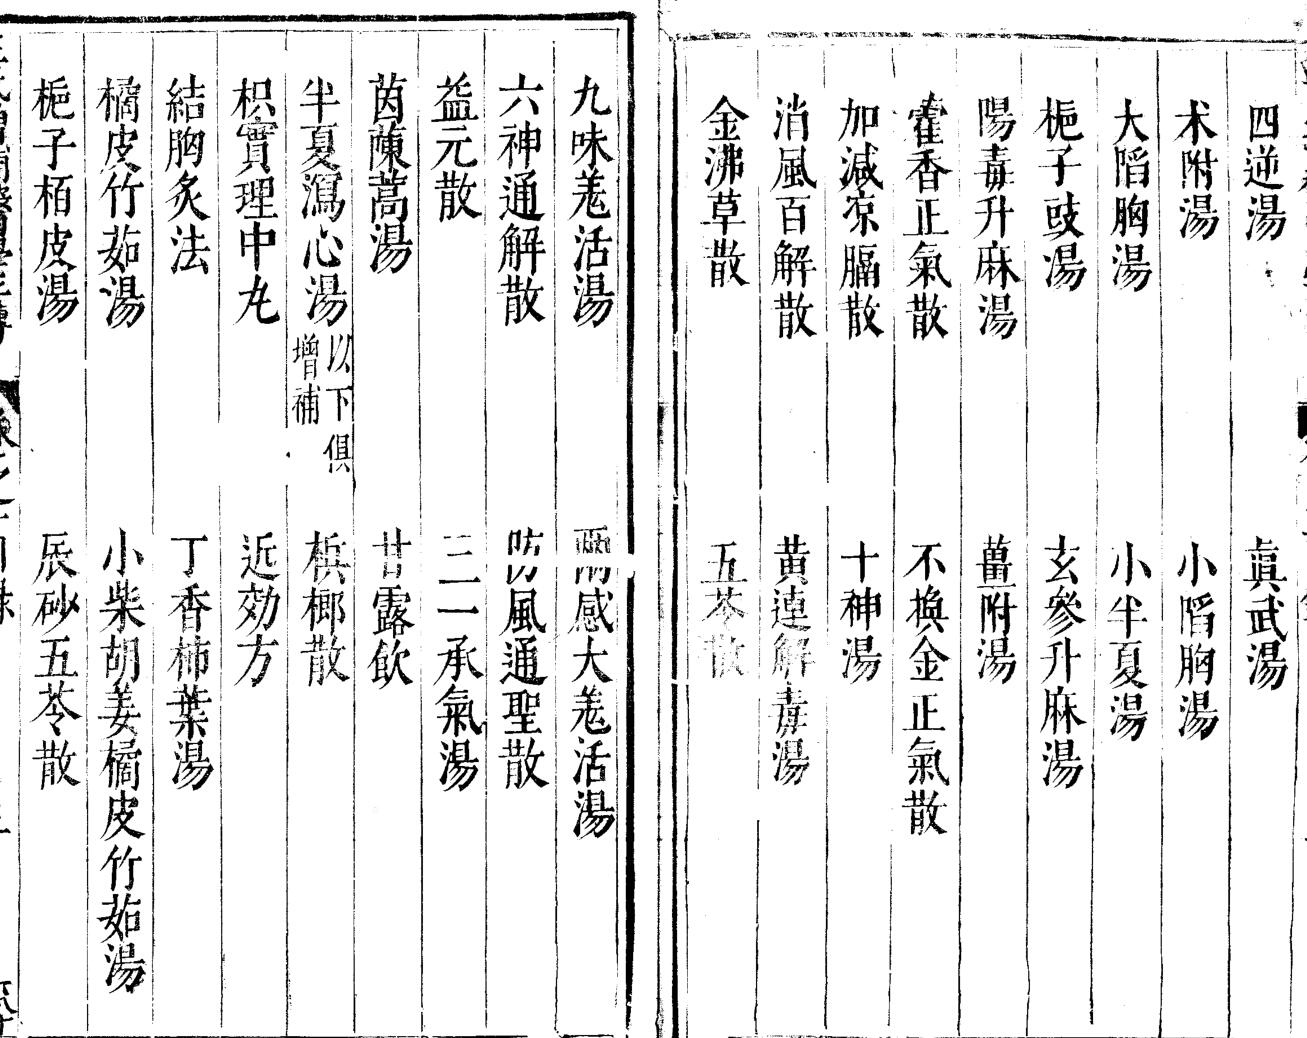 四逆湯　眞武湯
术附湯　小䧟胸湯
大䧟胸湯　小半夏湯
梔子豉湯　玄參升麻湯
陽毒升麻湯　薑附湯
藿香正氣散　不換金正氣散
加減凉膈散　十神湯
消風百解散　黄連解毒湯
金沸草散　五苓散
九味羗活湯　兩感大羗活湯
六神通解散　防風通聖散
益元散　三一承氣湯
茵蔯蒿湯　甘露飲
半夏瀉心湯以下俱增補　梹榔散
枳實理中丸　近効方
結胸灸法　丁香柿葉湯
橘皮竹茹湯　小柴胡姜橘皮竹茹湯
梔子栢皮湯　辰砂五苓散